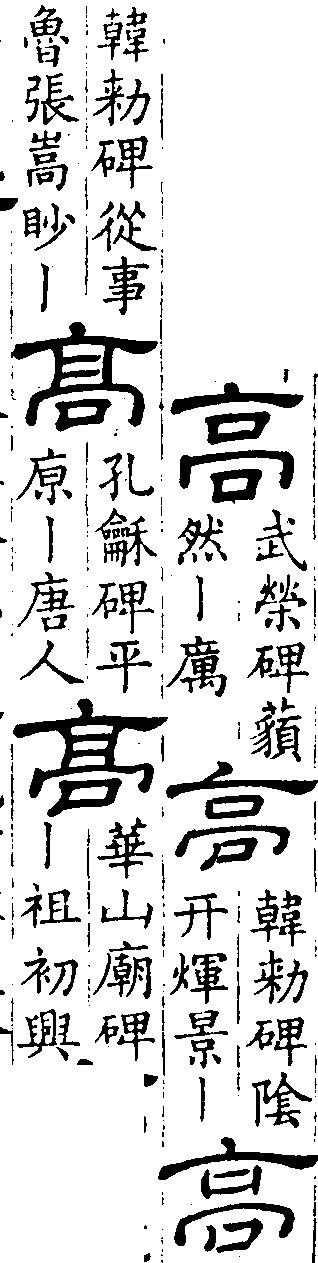 高
武榮碑
然｜厲
高
韓勑碑陰
开煇景｜
高
韓勑碑從事
魯張嵩眇｜
髙
孔龢碑平
原｜唐人
髙
華山廟碑
｜祖初興